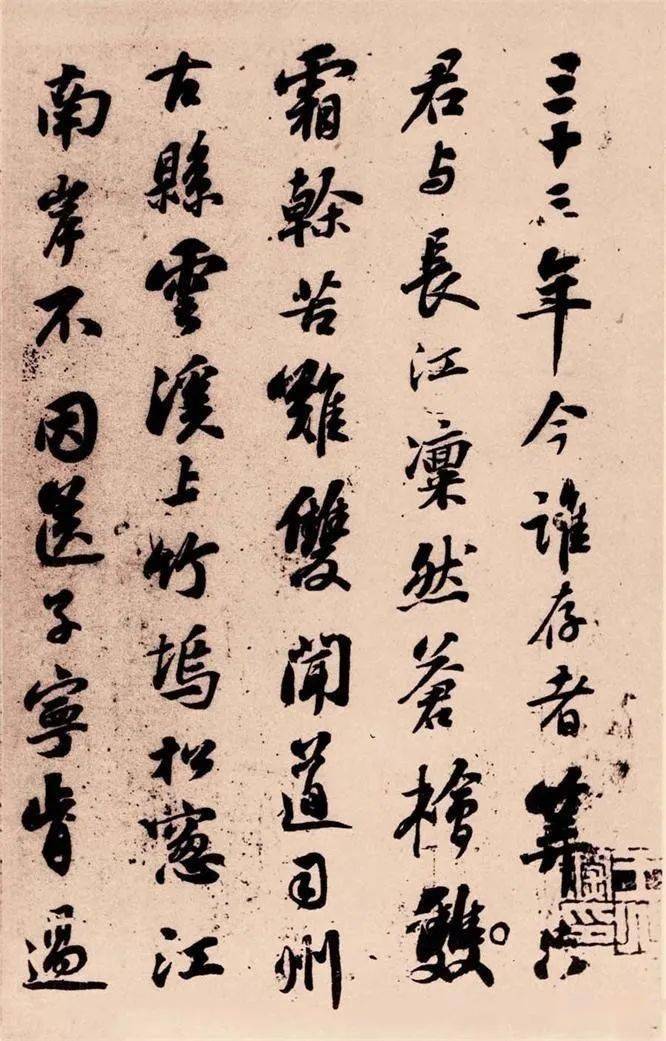 三十三年今誰存者筭只
君与長江凜然蒼檜雙
霜榦苦難雙聞道司州
古縣雲溪上竹塢松窓江
南岸不因送子寧肯過